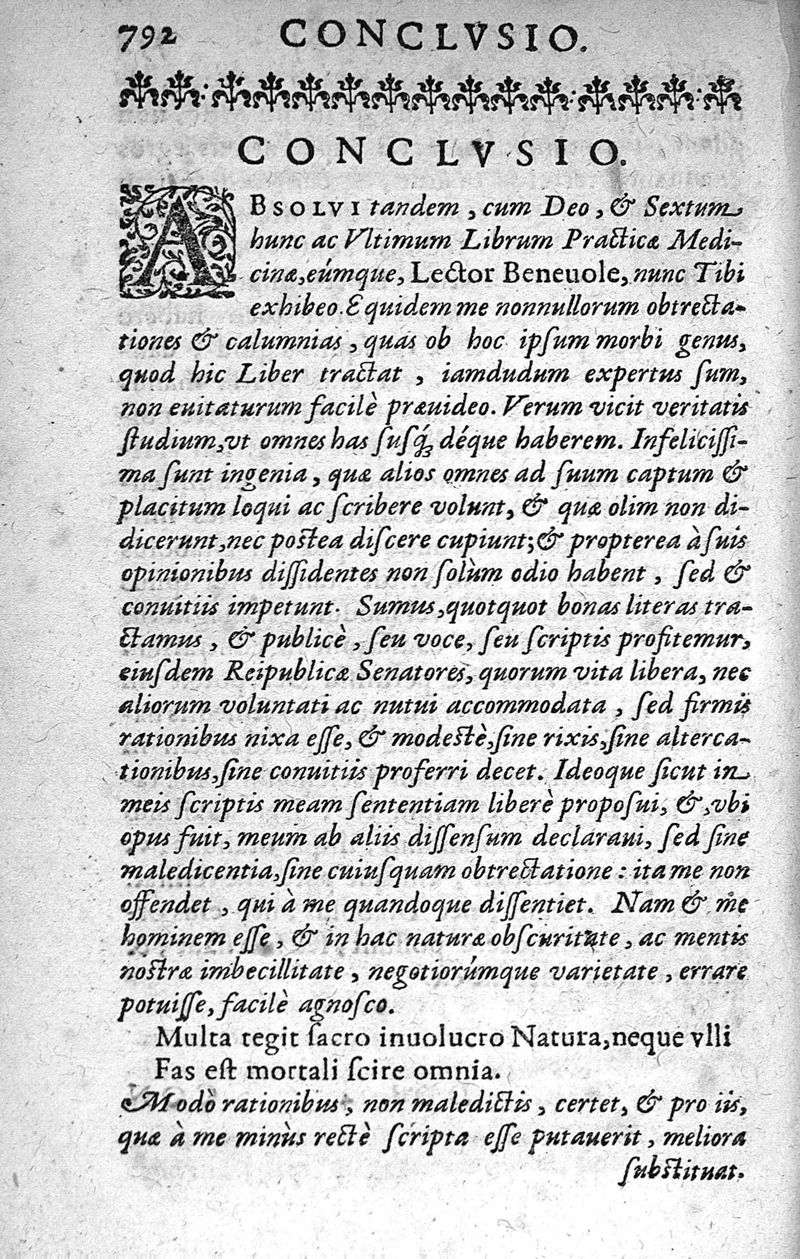 792 CONCLVSIO.
CONCLVSIO.
ABSOLVI tandem, cum Deo, & Sextum
hunc ac Vltimum Librum Practicæ Medi-
cinæ, eúmque, Lector Beneuole, nunc Tibi
exhibeo. Equidem me nonnullorum obtrecta-
tiones & calumnias, quas ob hoc ipſum morbi genus,
quod hic Liber tractat, iamdudum expertus ſum,
non euitaturum facilè præuideo. Verum vicit veritatis
ſtudium, vt omnes has ſuſq́ꝫ déque haberem. Infeliciſſi-
ma ſunt ingenia, quæ alios omnes ad ſuum captum &
placitum loqui ac ſcribere volunt, & quæ olim non di-
dicerunt, nec poſtea diſcere cupiunt; & propterea à ſuis
opinionibus diſſidentes non ſolùm odio habent, ſed &
conuitiis impetunt. Sumus, quotquot bonas literas tra-
ctamus, & publicè, ſeu voce, ſeu ſcriptis profitemur,
eiuſdem Reipublicæ Senatores, quorum vita libera, nec
aliorum voluntati ac nutui accommodata, ſed firmis
rationibus nixa eſſe, & modeſtè, ſine rixis, ſine alterca-
tionibus, ſine conuitiis proferri decet. Ideoque ſicut in
meis ſcriptis meam ſententiam liberè propoſui, &, vbi
opus fuit, meum ab aliis diſſenſum declaraui, ſed ſine
maledicentia, ſine cuiuſquam obtrectatione: ita me non
offendet, qui à me quandoque diſſentiet. Nam & me
hominem eſſe, & in hac naturæ obſcuritate, ac mentis
noſtræ imbecillitate, negotiorúmque varietate, errare
potuiſſe, facilè agnoſco.
Multa tegit ſacro inuolucro Natura, neque vlli
Fas eſt mortali ſcire omnia.
Modò rationibus, non maledictis, certet, & pro iis,
quæ à me minùs rectè ſcripta eſſe putauerit, meliora
ſubſtituat.